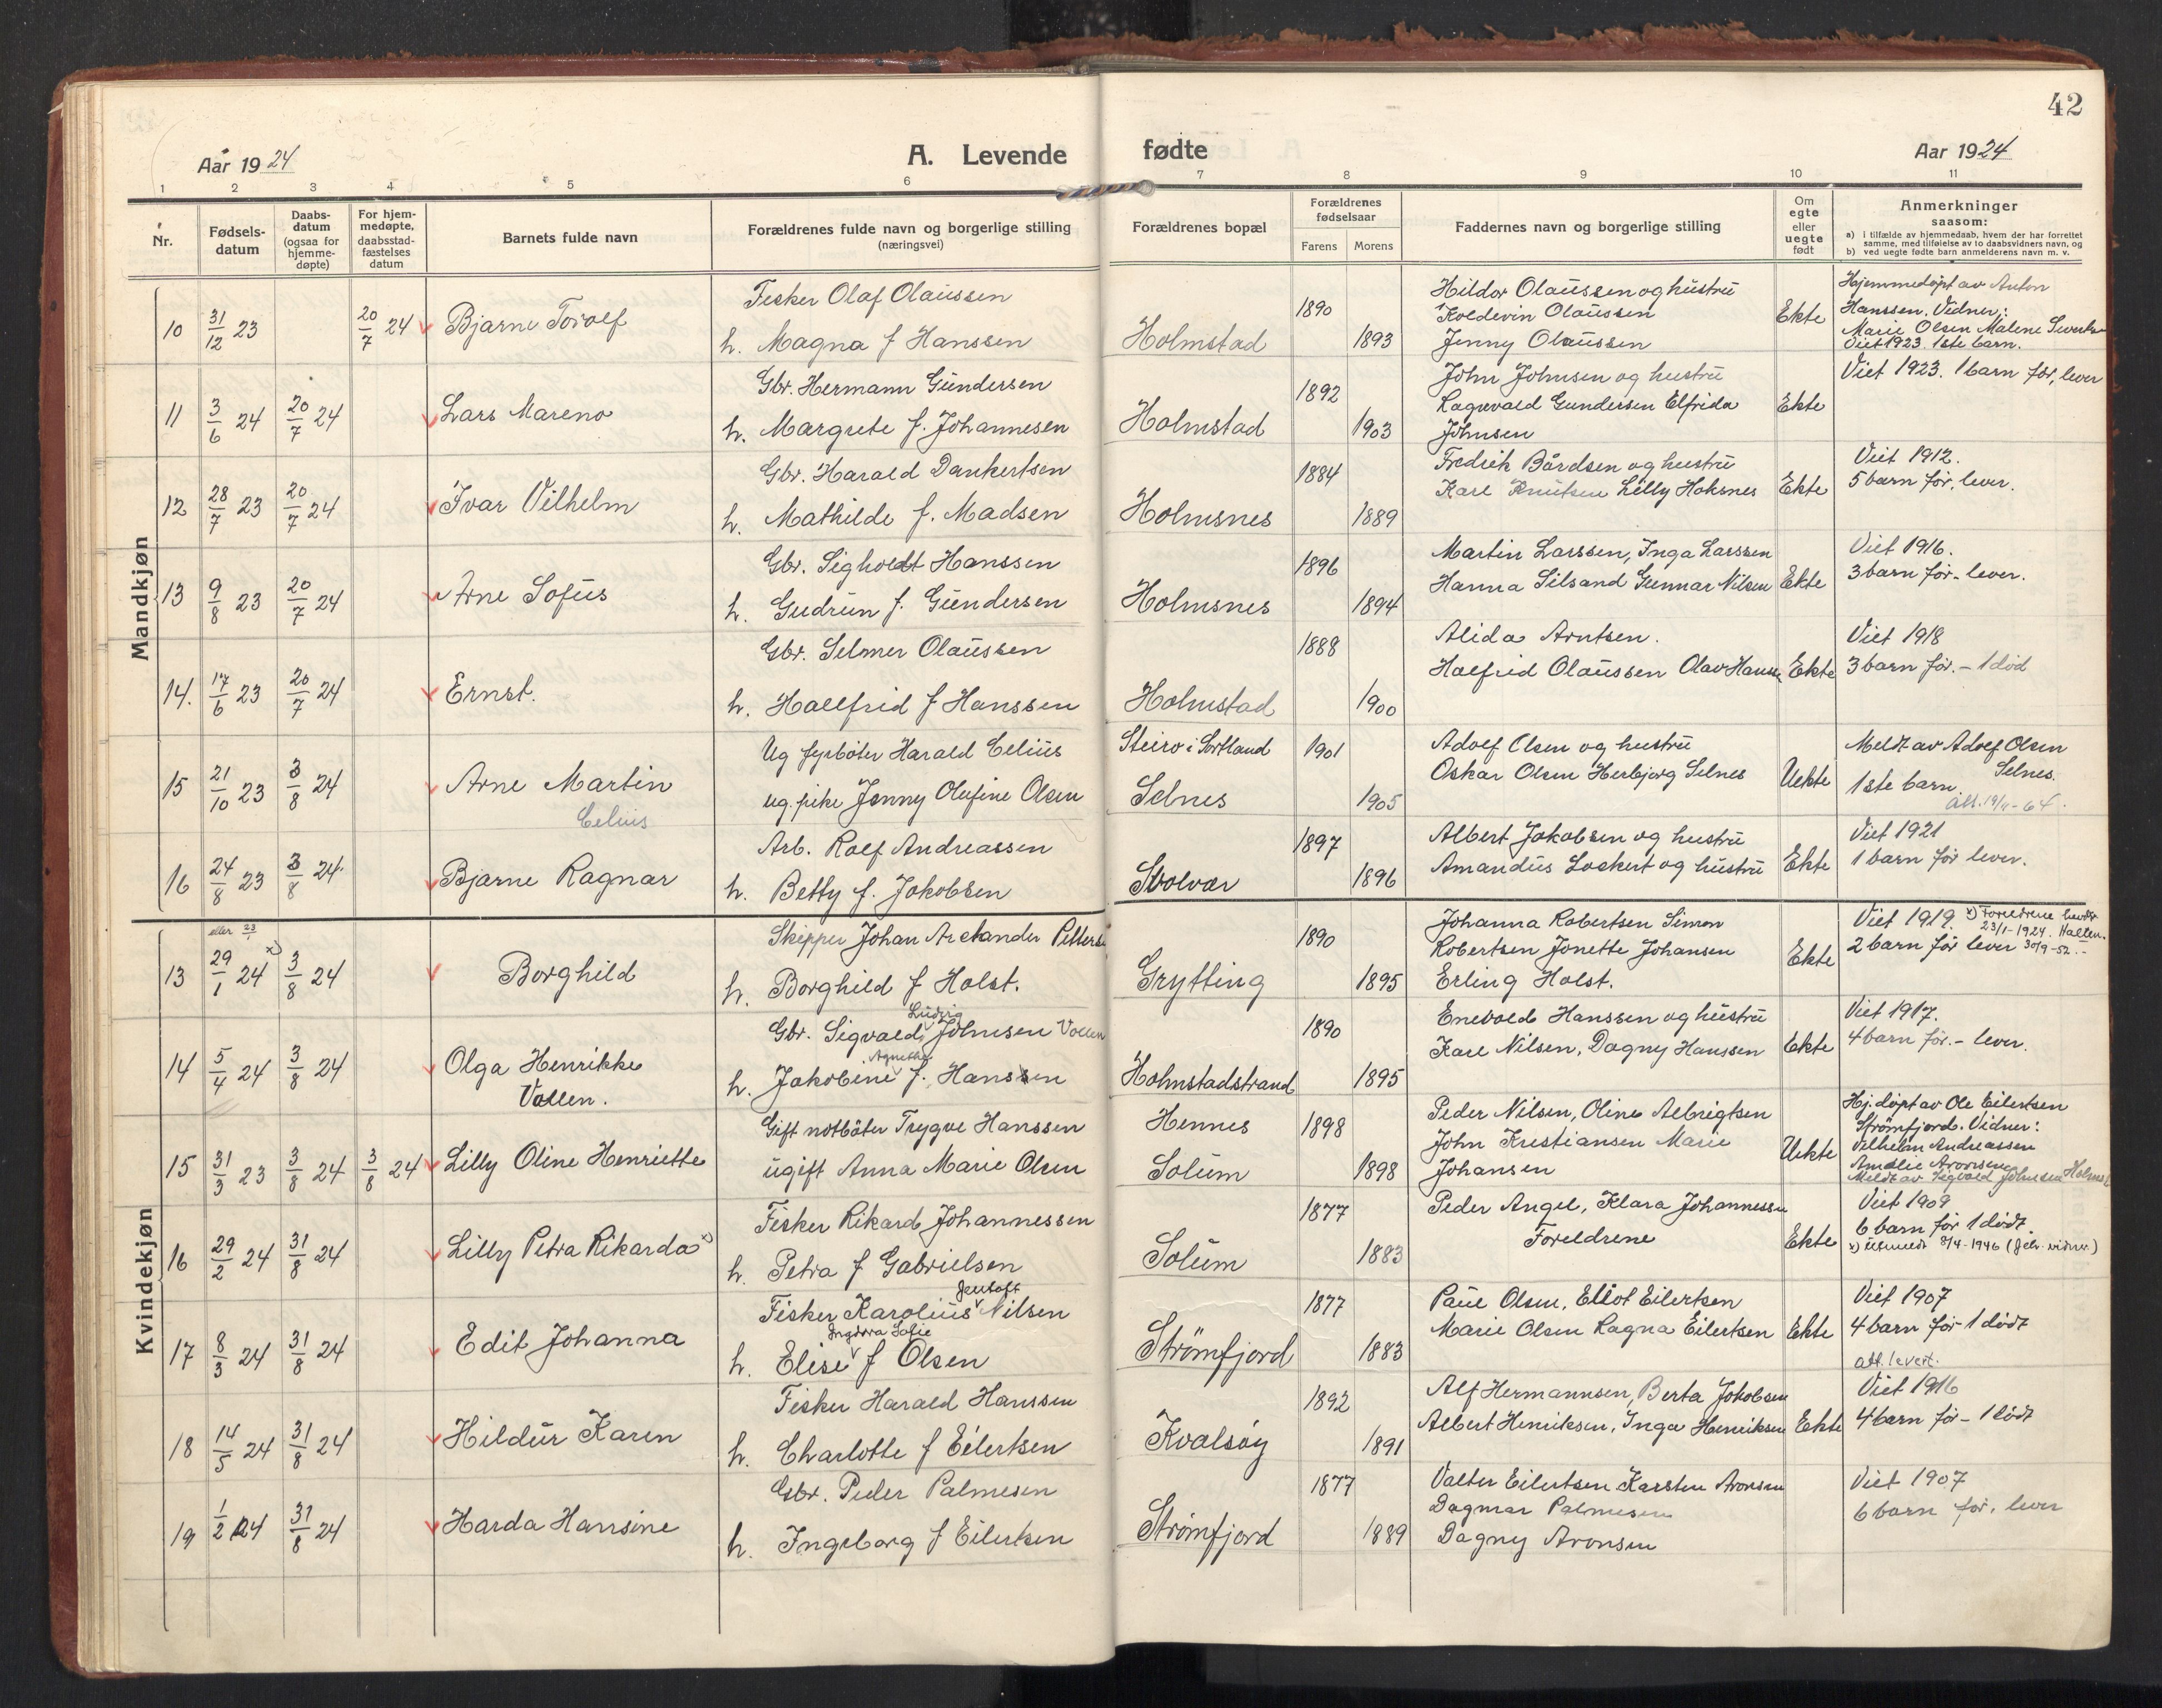 42
Aar 1924
A. Levende fødte
Aar 1924
1 2 3 4 5 6 7 8 9 10 11
Nr.
Fødsels-
datum
Daabs-
datum
(ogsaa for
hjemme-
døpte)
For hjem-
medøpte,
daabsstad-
fæstelses
datum
Barnets fulde navn
Forældrenes fulde navn og borgerlige stilling
(næringsvei)
Forældrenes bopæl
Forældrenes
fødselsaar
Farens Morens
Faddernes navn og borgerlige stilling
Om
egte
eller
uegte
født
Anmerkninger
saasom:
a) i tilfælde av hjemmedaab, hvem der har forrettet
samme, med tilføielse av to daabsvidners navn, og
b) ved uegte fødte barn anmelderens navn m. v.
Mandkjøn
10 31/12 23 20/7 24 Bjarne Torolf
Fisker Olaf Olaussen
h. Magna f Hanssen
Holmstad 1890 1893
Hildor Olaussen og hustru
Koldevin Olaussen
Jenny Olaussen
Ekte
Hjemmedøpt av Anton
Hanssen. Vidner:
Marie Olsen Malene
Viet 1923. 1ste barn.
11 3/6 24 20/7 24 Lars Mareno
Gbr. Hermann Gundersen
h. Margrete f. Johannesen
Holmstad 1892 1903
John Johnsen og hustru
Ragnvald Gundersen Elfrida
Johnsen
Ekte
Viet 1923. 1 barn før, lever
12 28/7 23 20/7 24 Ivar Vilhelm
Gbr. Harald Dankertsen
h. Mathilde f. Madsen
Holmsnes 1884 1889
Fredrik Bårdsen og hustru
Karl Knutsen Lilly Hoksnes
Ekte
Viet 1912.
5 barn før, lever.
13 9/8 23 20/7 24 Arne Sofus
Gbr. Sigholdt Hanssen
h. Gudrun f. Gundersen
Holmsnes 1896 1894
Martin Larssen, Inga Larssen
Hanna Silsand Gunnar Nilsen
Ekte
Viet 1916.
3 barn før - lever.
14. 17/6 23 20/7 24 Ernst.
Gbr. Selmer Olaussen
h. Hallfrid f Hanssen
Holmstad 1888 1900
Alida Arntsen.
Halfrid Olaussen Olav Hanss
Ekte
Viet 1918
3 barn før. - 1 død
15 21/10 23 3/8 24 Arne Martin
Celius
Ug fyrbøter Harald Celius
ug. pike Jenny Olufine Olsen
Steiro i Sortland
Selnes
1901 1905
Adolf Olsen og hustru
Oskar Olsen Herbjørg Selnes
Uekte
Meldt av Adolf Olsen
Selnes.
1ste barn.
att. 19/11-64.
16 24/8 23 3/8 24. Bjarne Ragnar
Arb. Rolf Andreassen
h. Betty f. Jakobsen
Svolvær 1897 1896
Albert Jakobsen og hustru
Amandus Lockert og hustru
Ekte
Viet 1921
1 barn før lever.
Kvindekjøn
eller 23/1
13 29/1 24 x) 3/8 24 Borghild
Skipper Johan Arctander Petters
h. Borghild f Holst.
Grytting 1890 1895
Johanna Robertsen Simon
Robertsen Jonette Johansen
Erling Holst.
Ekte
Viet 1919. x) Foreldrene hevder
23/1-1924. Hallen.
2 barn før lever 30/9-52.-
14 5/4 24 3/8 24 Olga Henrikke
Vollen.
Gbr. Sigvald Ludvig Johnsen Vollen
h. Jakobine Agnethe f. Hanssen
Holmstadstrand 1890 1895
Enevold Hanssen og hustru
Karl Nilsen, Dagny Hanssen
Ekte
Viet 1917.
4 barn før. - lever.
15 31/3 23 3/8 24 3/8 24 Lilly Oline Henriette
Gift notbøter Trygve Hanssen
ugift Anna Marie Olsen
Hennes
Solum
1898 1898
Peder Nilsen, Oline Albrigtsen
John Kristiansen Marie
Johansen
Uekte
Hj. døpt av Ole Eilertsen
Strømfjord. Vidner:
Vilhelm Andreassen
Amalie Aronsen
Meldt av Sigvald Johnsen
16 29/2 24 31/8 24 Lilly Petra Rikarda x)
Fisker Rikard Johannessen
h. Petra f Gabrielsen
Solum 1877 1883
Peder Angel, Klara Johannessen
Foreldrene
Ekte
Viet 1909
6 barn før 1 dødt.
x) utmeldt 8/4-1946
17 8/3 24 31/8 24 Edit Johanna
Fisker Karolius Jentoft Nilsen
h. Elise Ingdora Sofie f Olsen
Strømfjord 1877 1883
Paul Olsen, Elliot Eilertsen
Marie Olsen Ragna Eilertsen
Ekte
Viet 1907
4 barn før 1 dødt
att. levert.
18 14/5 24 31/8 24 Hildur Karen
Fisker Harald Hanssen
h. Charlotte f Eilertsen
Kvalsøy 1892 1891
Alf Hermannsen, Berta Jakobsen
Albert Henriksen, Inga Henriksen
Ekte
Viet 1916
4 barn før - 1 dødt
19 1/2 24 31/8 24 Harda Hansine
Gbr. Peder Palmesen
h. Ingeborg f Eilertsen
Strømfjord 1877 1889
Valter Eilertsen Karsten Aronsen
Dagmar Palmesen
Dagny Aronsen
Viet 1907
6 barn før, lever